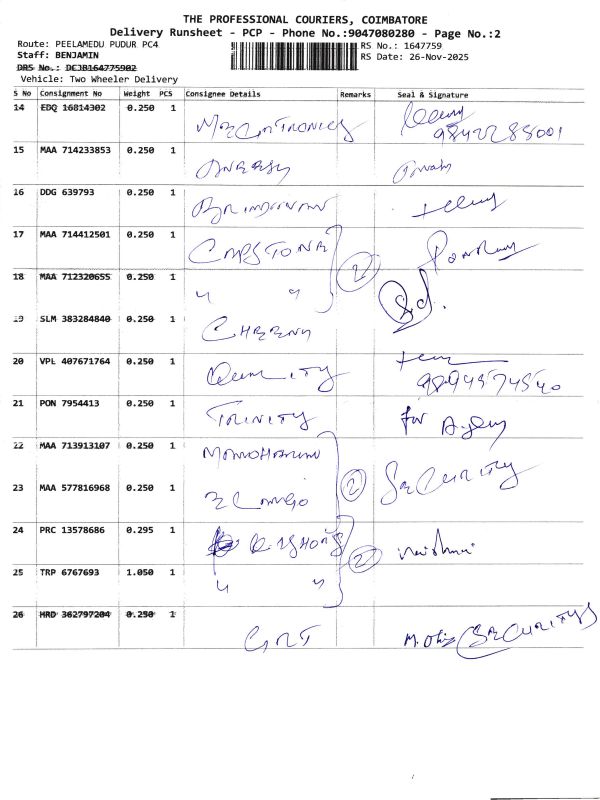 THE PROFESSIONAL COURIERS, COIMBATORE
Delivery Runsheet - PCP - Phone No.:9047080280 - Page No.:2
Route: PEELAMEDU PUDUR PC4
RS No.: 1647759
Staff: BENJAMIN
RS Date: 26-Nov-2025
DRS No.: DCJB164775902
Vehicle: Two Wheeler Delivery
S No Consignment No Weight PCS Consignee Details Remarks Seal & Signature
14 EDQ 16814302 0.250 1
9842285001
15 MAA 714233853 0.250 1
16 DDG 639793 0.250 1
17 MAA 714412501 0.250 1 CAPSTONE
2
18 MAA 712320655 0.250 1 " " Sd.
19 SLM 383284840 0.250 1 CHERNY
20 VPL 407671764 0.250 1 QUALITY
9894574540
21 PON 7954413 0.250 1 TRINITY for
22 MAA 713913107 0.250 1
2 SECURITY
23 MAA 577816968 0.250 1
24 PRC 13578686 0.295 1
2
25 TRP 6767693 1.050 1 " "
26 HRD 362797204 0.250 1 GRT SECURITY